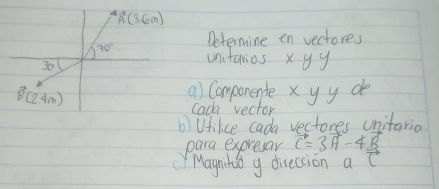 A⃗ (3.6m)
70°
30
B⃗ (2.4m)
Determine en vectores
unitarios x y y
a) Componente x y y de
cada vector
b) Utilice cada vectores unitario
para expresar C⃗ = 3A⃗ - 4B⃗
c) Magnitud y dirección a C⃗